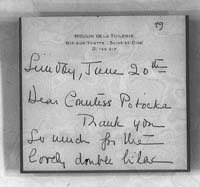 29
MOULIN DE LA TUILERIE
GIF-SUR-YVETTE · SEINE-ET-OISE
Sunday, June 20th
Dear Countess Potocka
Thank you
so much for the
lovely double lilac